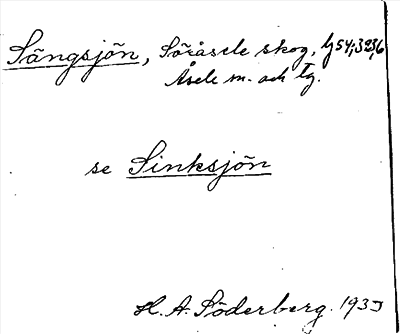 Sängsjön, Söråsele skog,
Åsele sn. och tg.
se Sinksjön
H. A. Söderberg. 1935